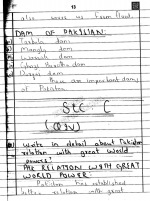 13
also saves us from flood.
DAM OF PAKISTAN:
Tarbela dam
Mangla dam
Warsak dam
dam
dam
These are important dams
of Pakistan.
Sec: C
Write in detail about Pakistan
relation with great world
powers?
THE RELATION WITH GREAT
WORLD POWER:
Pakistan has established
better relation with great